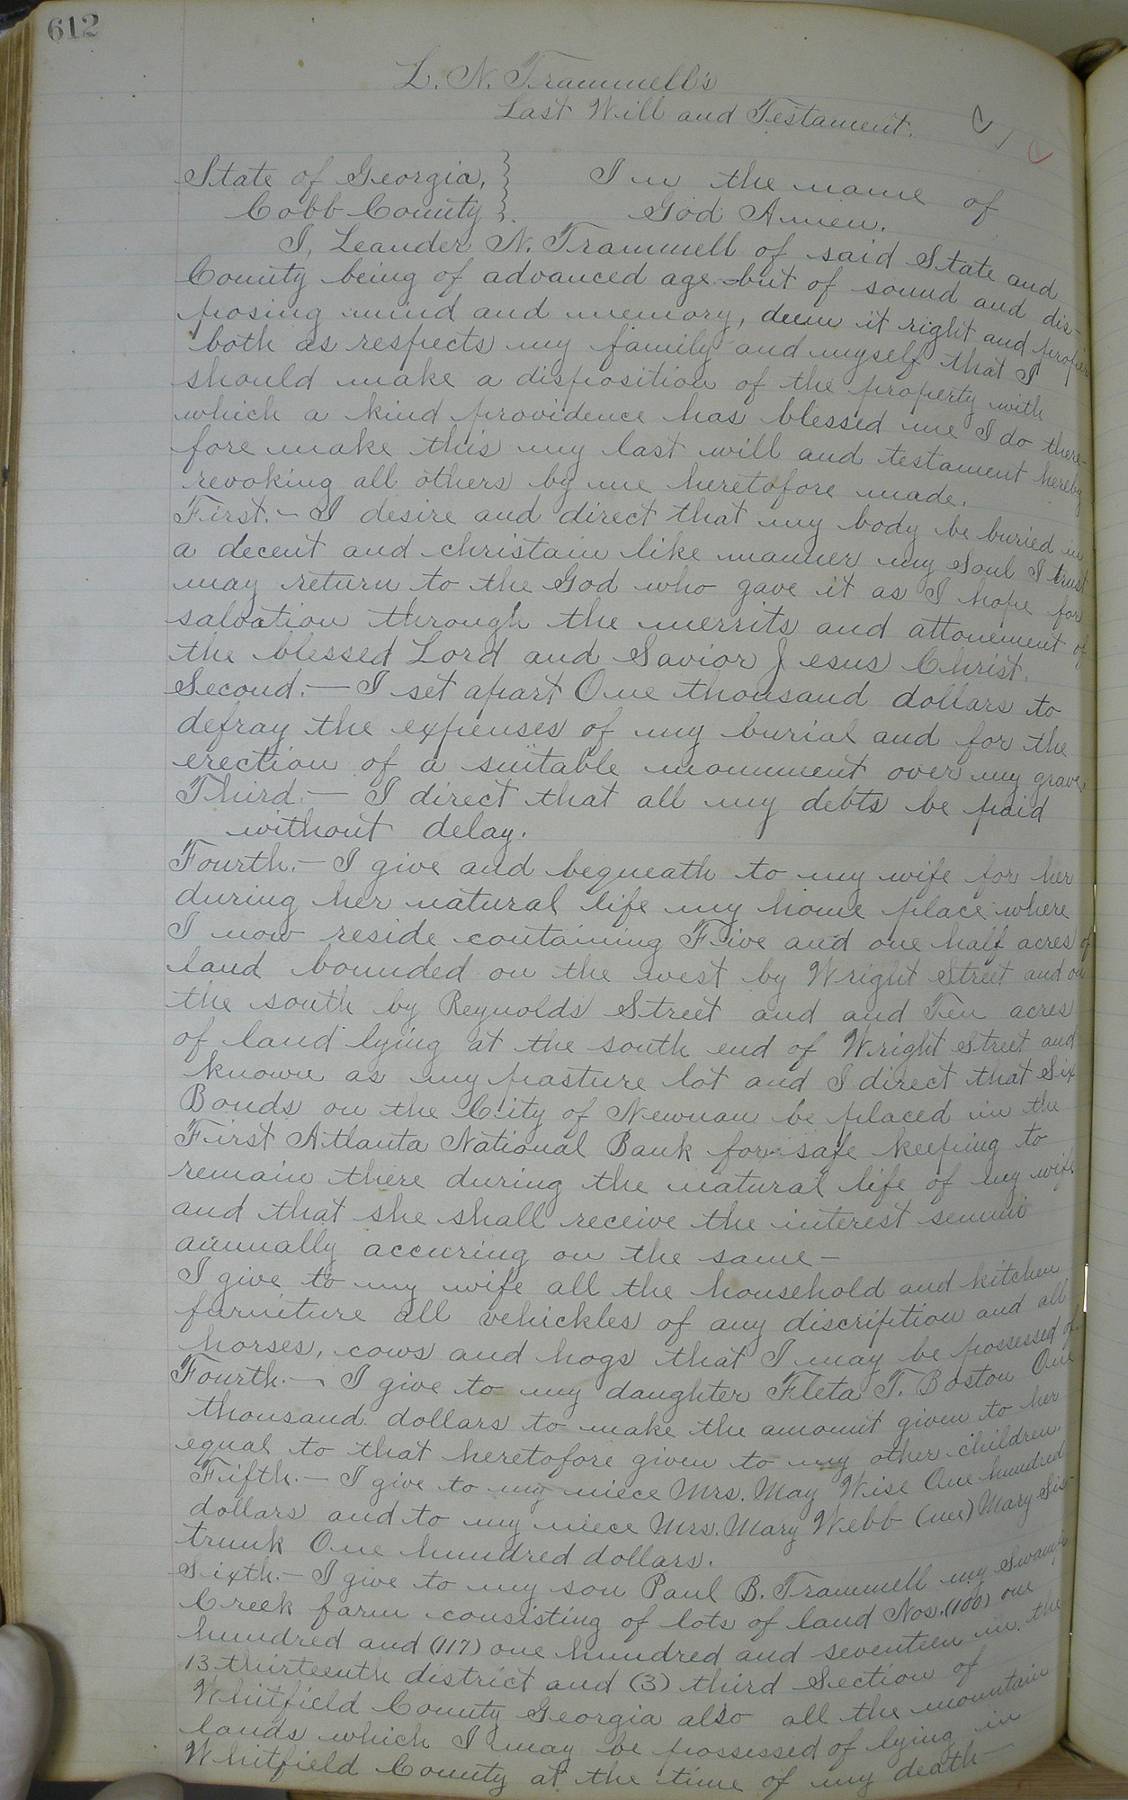 612
L. N. Trammell's
Last Will and Testament.
State of Georgia, } In the name of
Cobb County }. God Amen.
I, Leander N. Trammell of said State and
County being of advanced age but of sound and dis-
posing mind and memory, deem it right and proper
both as respects my family and myself that I
should make a disposition of the property with
which a kind providence has blessed me I do there-
fore make this my last will and testament hereby
revoking all others by me heretofore made.
First.- I desire and direct that my body be buried in
a decent and christain like manner my Soul I trust
may return to the God who gave it as I hope for
salvation through the merrits and attonement of
the blessed Lord and Savior Jesus Christ.
Second.- I set apart One thousand dollars to
defray the expenses of my burial and for the
erection of a suitable monument over my grave.
Third.- I direct that all my debts be paid
without delay.
Fourth.- I give and bequeath to my wife for her
during her natural life my home place where
I now reside containing Five and one half acres of
land bounded on the west by Wright Street and on
the south by Reynolds Street and and Ten acres
of land lying at the south end of Wright Street and
known as my pasture lot and I direct that Six
Bonds on the City of Newnan be placed in the
First Atlanta National Bank for safe keeping to
remain there during the natural life of my wife
and that she shall receive the interest semmi
annually accuring on the same-
I give to my wife all the household and kitchen
furniture all vehickles of any discription and all
horses, cows and hogs that I may be possessed of.
Fourth.- I give to my daughter Fleta T. Boston One
thousand dollars to make the amount given to her
equal to that heretofore given to my other children.
Fifth.- I give to my niece Mrs. May Wise One hundred
dollars and to my niece Mrs. Mary Webb (nee) Mary Sis-
trunk One hundred dollars.
Sixth.- I give to my son Paul B. Trammell my Swamp
Creek farm consisting of lots of land Nos. (100) one
hundred and (117) one hundred and seventeen in the
13 thirteenth district and (3) third Section of
Whitfield County Georgia also all the mountain
lands which I may be possessed of lying in
Whitfield County at the time of my death-